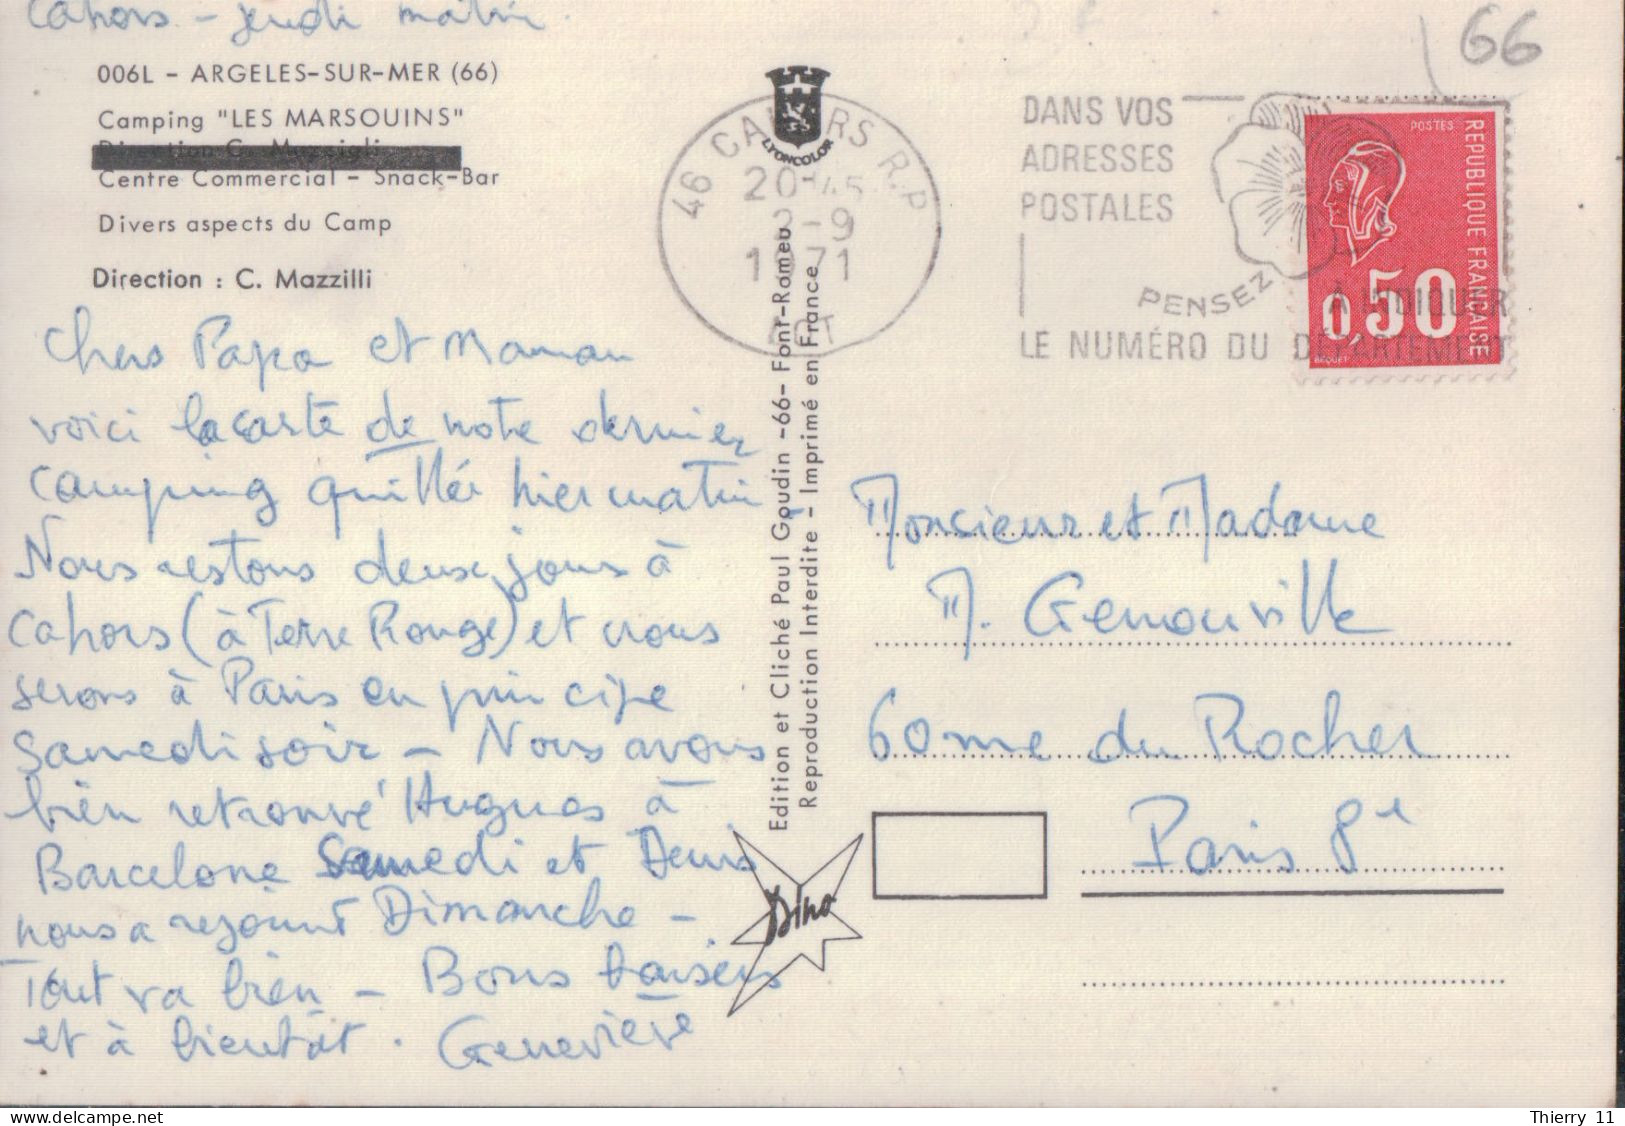 Cahors - jeudi matin.
66
006L - ARGELES-SUR-MER (66)
Camping "LES MARSOUINS"
Centre Commercial - Snack-Bar
Divers aspects du Camp
Direction : C. Mazzilli
Chers Papa et Maman
voici la carte de notre dernier
camping quitté hier matin -
Nous restons deux jours à
Cahors (à Terre Rouge) et nous
serons à Paris en principe
samedi soir - Nous avons
bien retrouvé Hugues à
Barcelone Samedi et Denis
nous a rejoint Dimanche -
Tout va bien - Bons baisers
et à bientôt. Geneviève
LYONCOLOR
46 CAHORS R.P
20 45
2-9
1971
LOT
DANS VOS
ADRESSES
POSTALES
PENSEZ
À INDIQUER
LE NUMÉRO DU DÉPARTEMENT
POSTES
REPUBLIQUE FRANÇAISE
0,50
BEQUET
Edition et Cliché Paul Goudin -66- Font-Romeu
Reproduction Interdite - Imprimé en France
Dino
Monsieur et Madame
M. Genouville
60 rue du Rocher
Paris 8e
Thierry 11